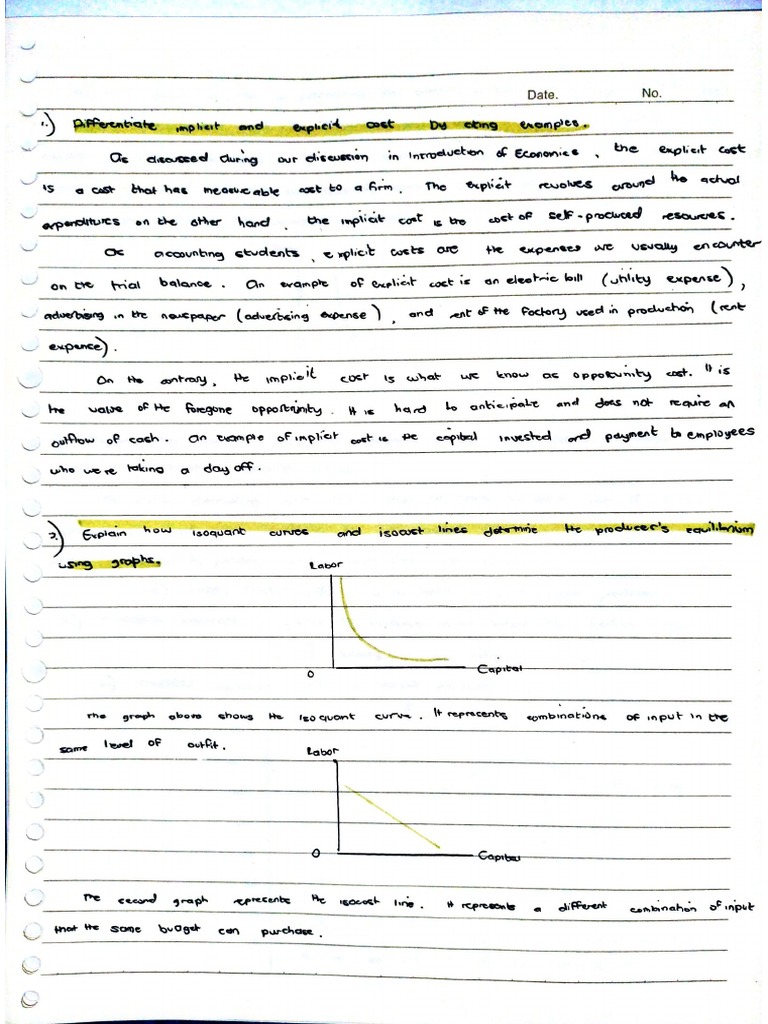 Date. No.
1.) Differentiate implicit and explicit cost by citing examples.
As discussed during our discussion in Introduction of Economics, the explicit cost
is a cost that has measurable cost to a firm. The explicit revolves around the actual
expenditures on the other hand, the implicit cost is the cost of self-produced resources.
As accounting students, explicit costs are the expenses we usually encounter
on the trial balance. An example of explicit cost is an electric bill (utility expense),
advertising in the newspaper (advertising expense), and rent of the factory used in production (rent
expense).
On the contrary, the implicit cost is what we know as opportunity cost. It is
the value of the foregone opportunity. It is hard to anticipate and does not require an
outflow of cash. An example of implicit cost is the capital invested and payment to employees
who were taking a day off.
2.) Explain how isoquant curves and isocost lines determine the producer's equilibrium
using graphs.
Labor
0 Capital
The graph above shows the isoquant curve. It represents combinations of input in the
same level of outfit.
Labor
0 Capital
The second graph represents the isocost line. It represents a different combination of input
that the same budget can purchase.